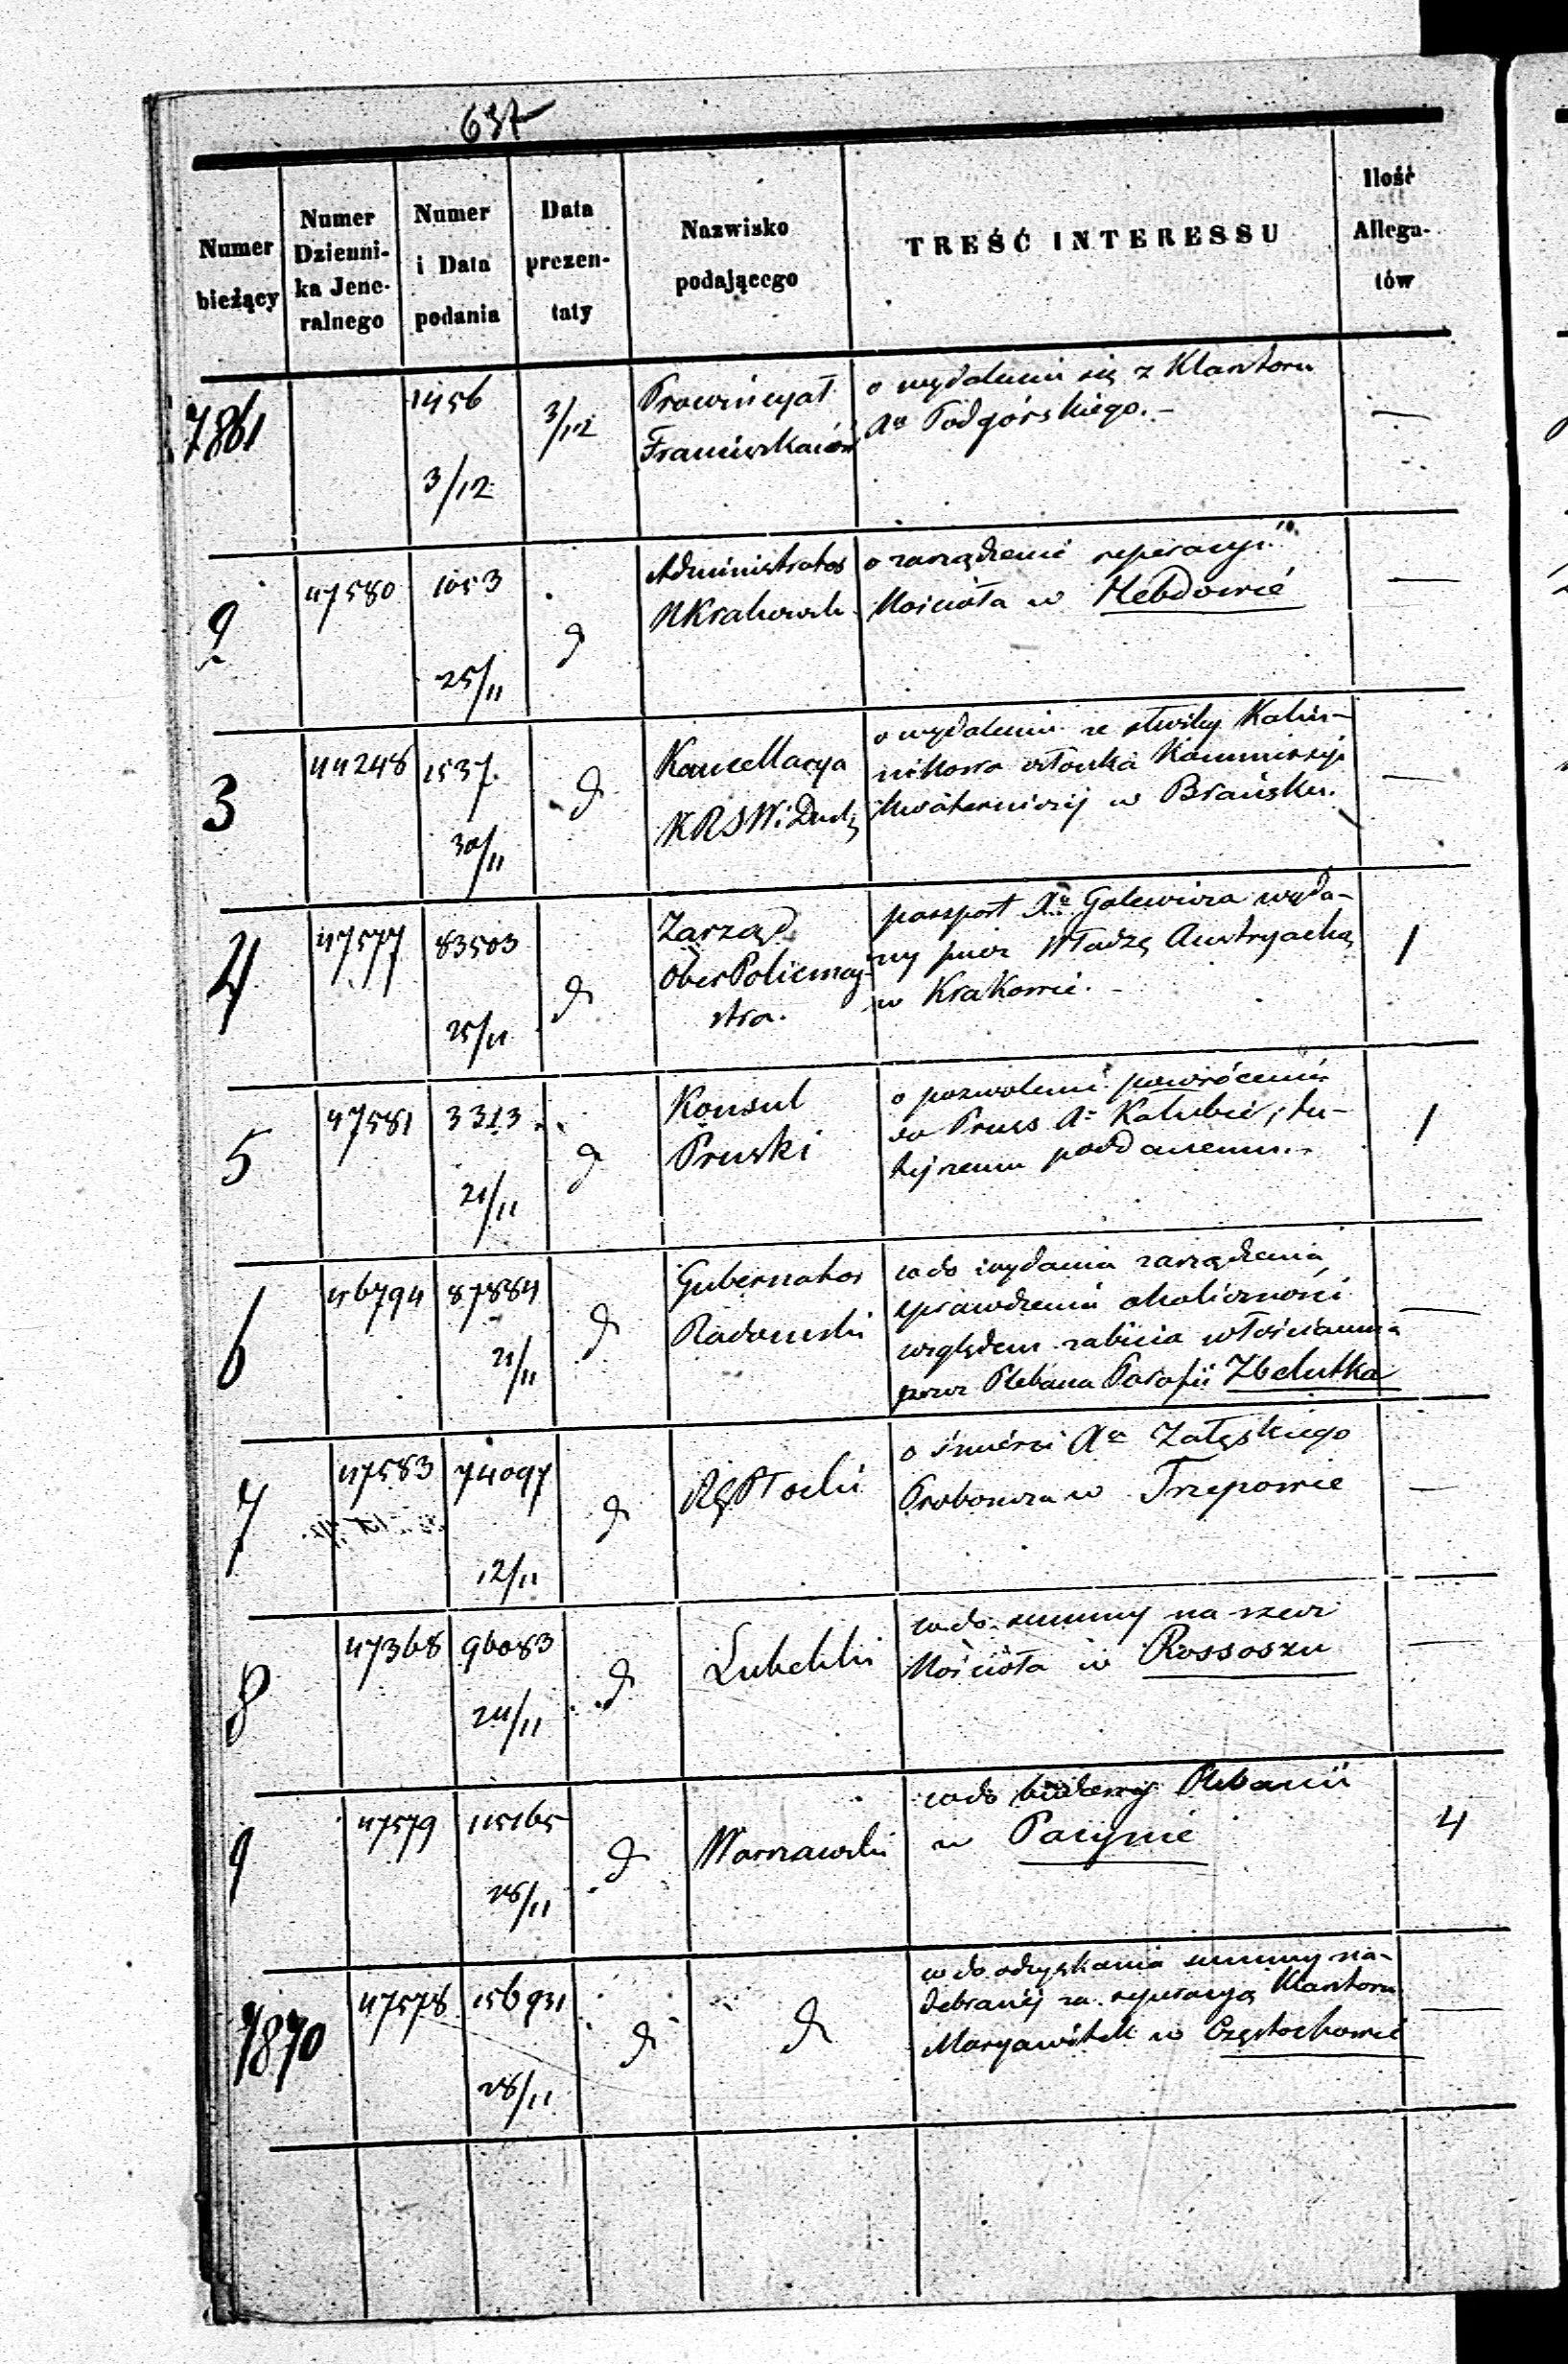 637
Numer bieżący
Numer Dzienni-ka Jene-ralnego
Numer i Data podania
Data prezen-taty
Nazwisko podającego
TREŚĆ INTERESSU
Ilość Allega-tów
7861
1456
3/12
3/12
Prowincyał
Franciszkanów
o wydaleniu się z Klasztoru
Xa Podgórskiego. –
—
2
47580
1053
25/11
d
Administrator
o zarządzenie reperacyi
Kościoła w Hebdowie
—
3
44248
1537
30/11
d
Kancellarya
KRSWiDuch
o wydaleniu ze służby Kalin-
nikowa członka Kommissyi
Kwaterniczej w Brańsku.
—
4
47577
83503
25/11
d
Zarząd
OberPolicmaj-
stra.
passport Xa Galewicza wyda-
ny przez Władzę Austryacką
w Krakowie. –
1
5
47581
3313
21/11
d
Konsul
Pruski
o pozwolenie powrócenia
do Pruss Xa Kałubie, tu-
tejszemu poddanemu. –
1
6
46794
87884
21/11
d
Gubernator
Radomski
co do wydania zarządzenia
sprawdzenia okoliczności
względem zabicia włościanina
przez Plebana Parafii Zbelutka
—
7
47583
74097
12/11
d
Płocki
o śmierci Xa Załęskiego
Proboszcza w Trzepowie
—
8
47368
96083
24/11
d
Lubelski
co do summy na rzecz
Kościoła w Rossoszu
—
9
47579
115165
28/11
d
Warszawski
co do budowy Plebanii
w Pacynie
4
7870
47578
156931
28/11
d
d
co do odzyskania summy na-
debranéj za reperacyą Klasztoru
Maryawitek w Częstochowie
—